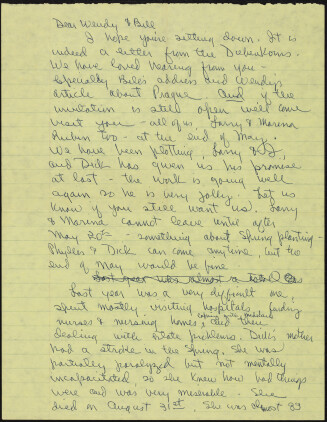 Dear Wendy & Bill
I hope you're settling down. It is
indeed a letter from the Diebenkorns.
We have loved hearing from you –
especially Bill's address and Wendy's
article about Prague. And if the
invitation is still open we'll come
visit you – all of us – Larry & Marina
Rubin too – at the end of May.
We have been plotting, Larry & I,
and Dick has given us his promise
at last – the work is going well
again, so he is very jolly. Let us
know if you still want us. Larry
& Marina cannot leave until after
May 20th – something about Spring planting –
Phyllis & Dick can come anytime, but the
end of May would be fine
Last year was almost a total
Last year was a very difficult one,
spent mostly visiting hospitals, finding
nurses & nursing homes, & then
dealing with estate problems. Dick's mother
had a stroke in the Spring. She was
partially paralyzed but not mentally
incapacitated, so she knew how bad things
were and was very miserable. She
died on August 31st. She was almost 89